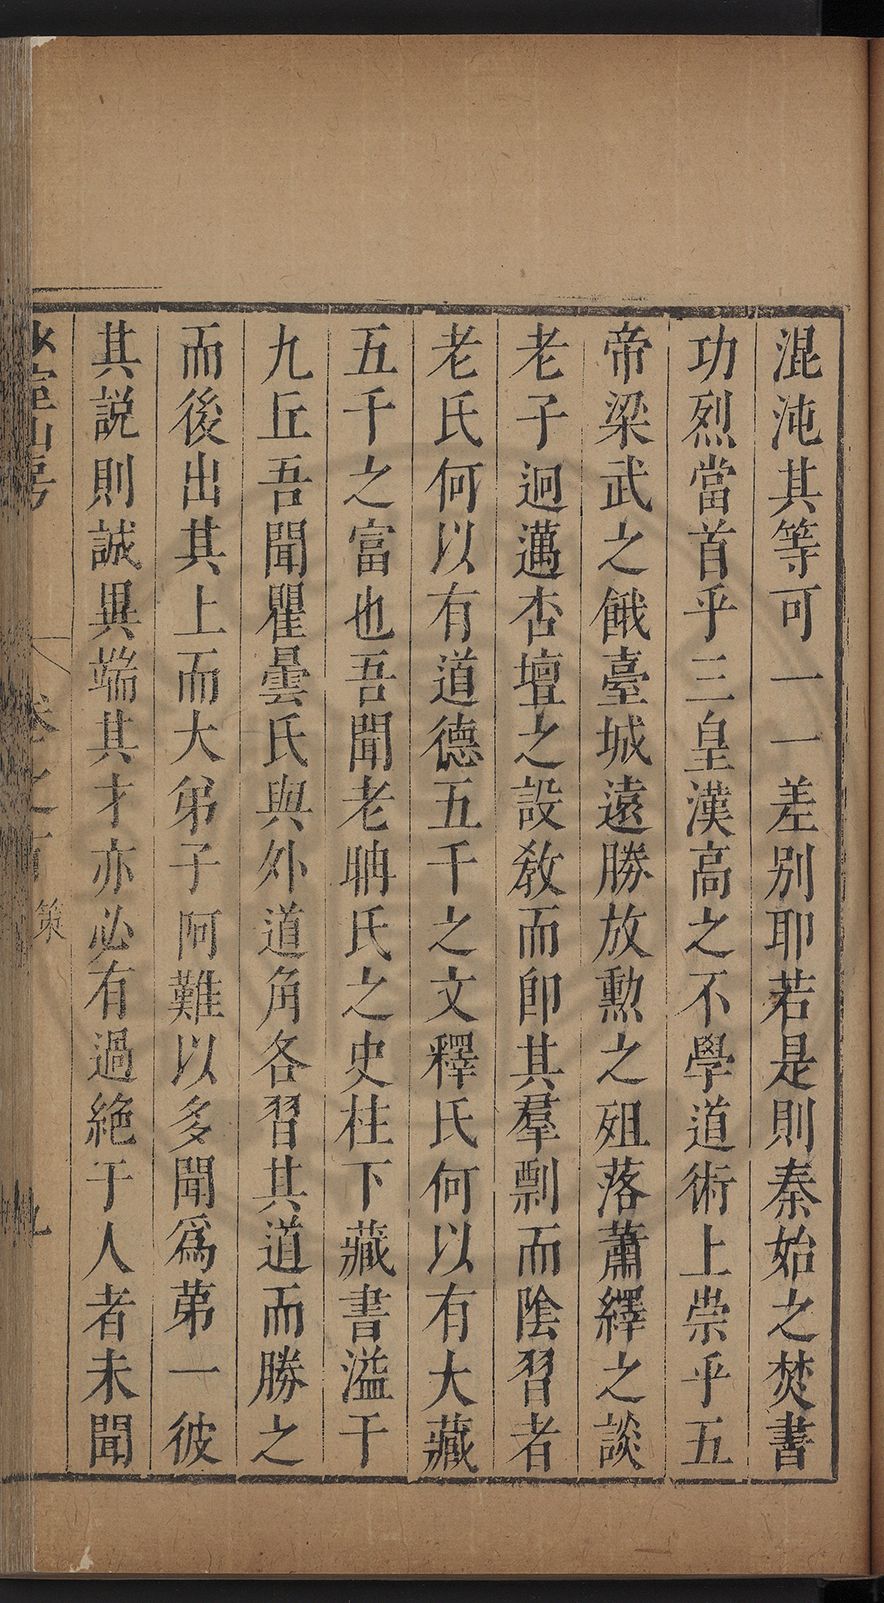 混沌其等可一一差别耶若是則秦始之焚書
功烈當首乎三皇漢高之不學道術上崇乎五
帝梁武之餓臺城遠勝放勲之殂落蕭繹之談
老子迥邁杏壇之設教而即其羣剽而陰習者
老氏何以有道德五千之文釋氏何以有大藏
五千之富也吾聞老聃氏之史柱下藏書溢于
九丘吾聞瞿曇氏與外道角各習其道而勝之
而後出其上而大弟子阿難以多聞爲苐一彼
其説則誠異端其才亦必有過絶于人者未聞
山房
策
九